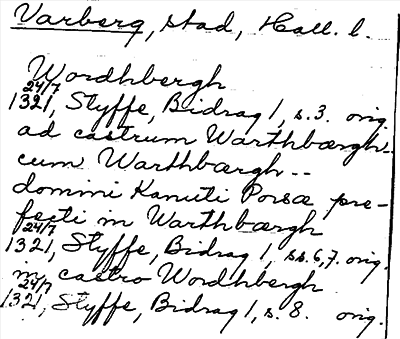 Varberg, stad, Hall. l.
Wordhbergh
24/7
1321, Styffe, Bidrag 1, s. 3. orig.
ad castrum Warthbærgh--
cum Warthbærgh--
domini Kanuti Porsæ pre-
fecti in Warthbærgh
24/7
1321, Styffe, Bidrag 1, ss. 6,7. orig.
in castro Wordhbergh
24/7
1321, Styffe, Bidrag 1, s. 8. orig.